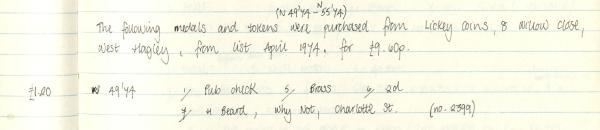 (N 49'74 - N55'74)
The following medals and tokens were purchased from Lickey Coins, 8 Willow Close,
West Hagley, from list April 1974. for £9.60p.
£1.20 N 49'74 1/ Pub check 5/ Brass 6/ 2d
7/ H Beard, Why Not, Charlotte St. (no. 2399)